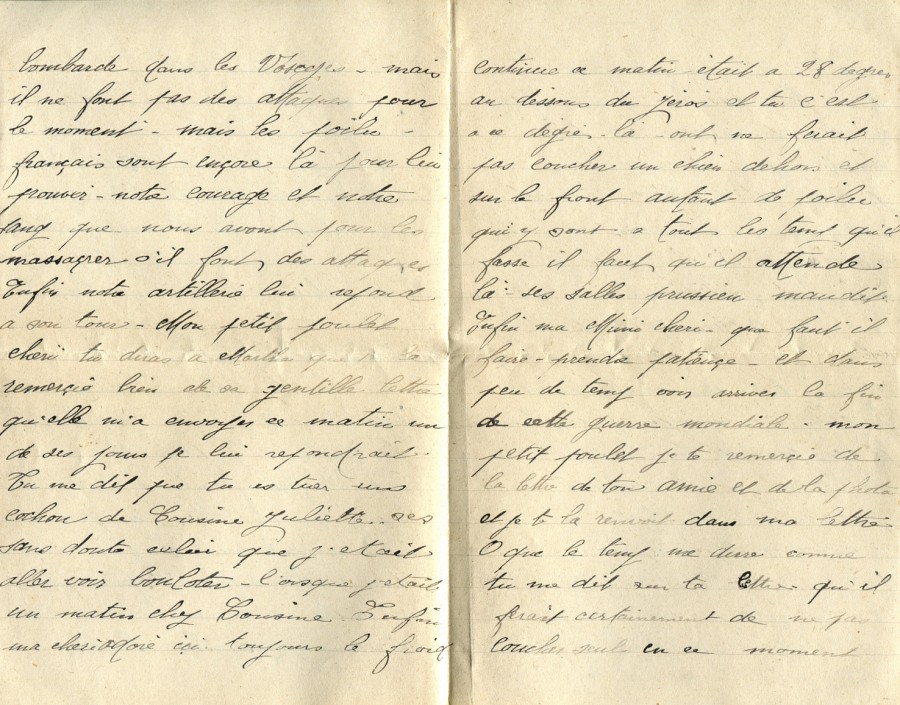 bombarde dans les Vosages - mais
il ne font pas des attaques pour
le moment - mais les poilu -
français sont encore là pour leu
prouver - notre courage et notre
sang que nous avont pour les
massagrer s'il font des attaques
Enfin notre artillerie lui repond
a son tour - Mon petit poulet
cheri tu diras a Martha que je la
remerçie bien de sa gentille lettre
qu'elle m'a envoyer ce matin un
de ses jours je lui repondrait
Tu me dit que tu es tuer un
cochon de Cousine Juliette
sans doute celui que j'etait
aller voir bouloter - l'orsque j'etait
un matin chez Cousine Enfin
ma cheri adoré ici toujours le froid
continue ce matin était a 28 degres
au dessous du zeros et tu c'est
a ce degre là ont ne ferait
pas coucher un chien dehors et
sur le front autant de poilu
qui y sont a tout les temp qu'il
fasse il faut qu'il attende
là ses salles prussien maudit
Enfin ma Mimi cheri - que faut il
faire - prendre patiençe - et dans
peu de temp vois arriver la fin
de cette guerre mondiale - mon
petit poulet je te remerçie de
la lettre de ton amie et de la photo
et je te la renvoit dans ma lettre
O que le temp me dure comme
tu me dit sur ta lettre qu'il
ferait certainement de ne pas
coucher seul en ce moment